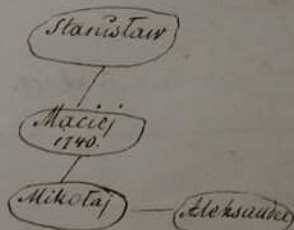 Stanisław
Maciej
1740.
Mikołaj
Aleksander